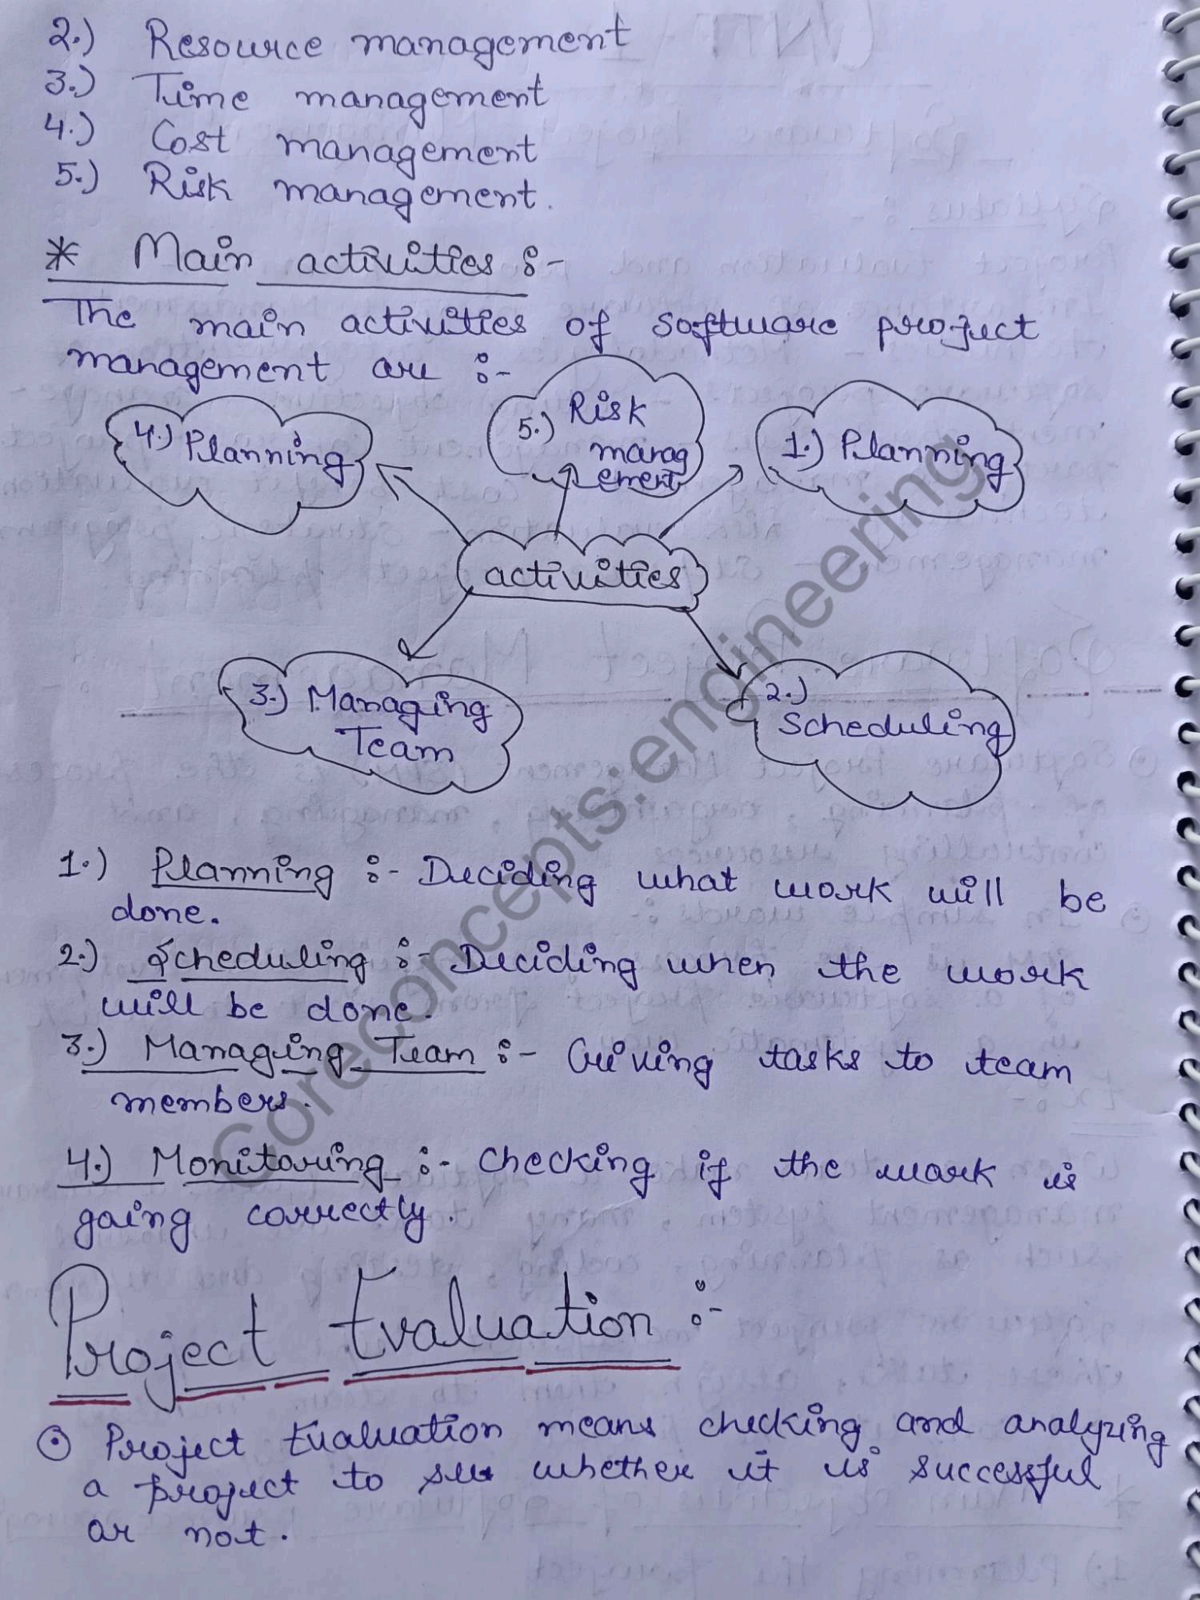 2.) Resource management
3.) Time management
4.) Cost management
5.) Risk management.
* Main activities :-
The main activities of software project
management are :-
4.) Planning
5.) Risk
manag
ement
1.) Planning
activities
3.) Managing
Team
2.)
Scheduling
1.) Planning :- Deciding what work will be
done.
2.) Scheduling :- Deciding when the work
will be done.
3.) Managing Team :- Giving tasks to team
members.
4.) Monitoring :- Checking if the work is
going correctly.
Project Evaluation :-
Project Evaluation means checking and analyzing
a project to see whether it is successful
or not.
Coreconcepts.engineering